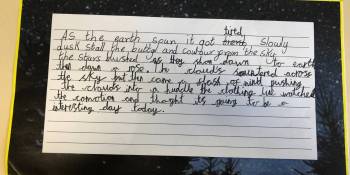 tired
As the earth span it got slowly
dusk stall the butter and contour from the sky
the stars twisted as they shon down to earth
then dawn a rose. the clouds sauntered across
the sky but then came a flash of wind pushing
the clouds into a huddle the clothing line watched
the comotion and thought its going to be a
intresting day today.